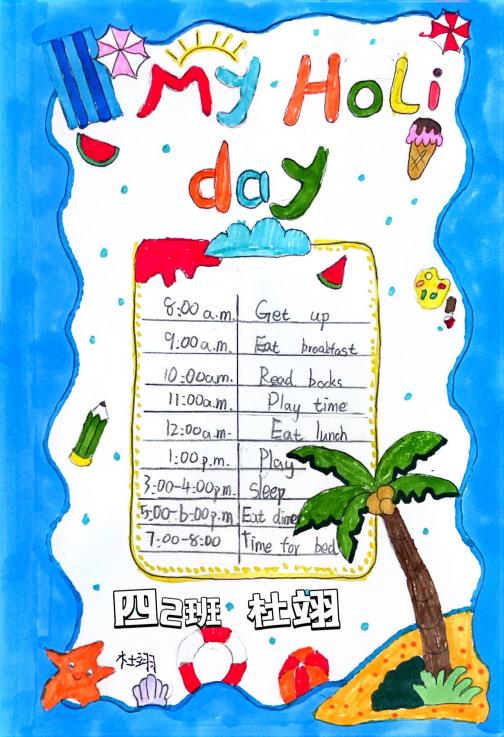 My Holi
day
8:00 a.m. Get up
9:00 a.m. Eat breakfast
10:00a.m. Read books
11:00a.m. Play time
12:00a.m. Eat lunch
1:00p.m. Play
3:00-4:00p.m. sleep
5:00-6:00p.m Eat diner
7:00-8:00 time for bed
四2班 杜翊
杜翊